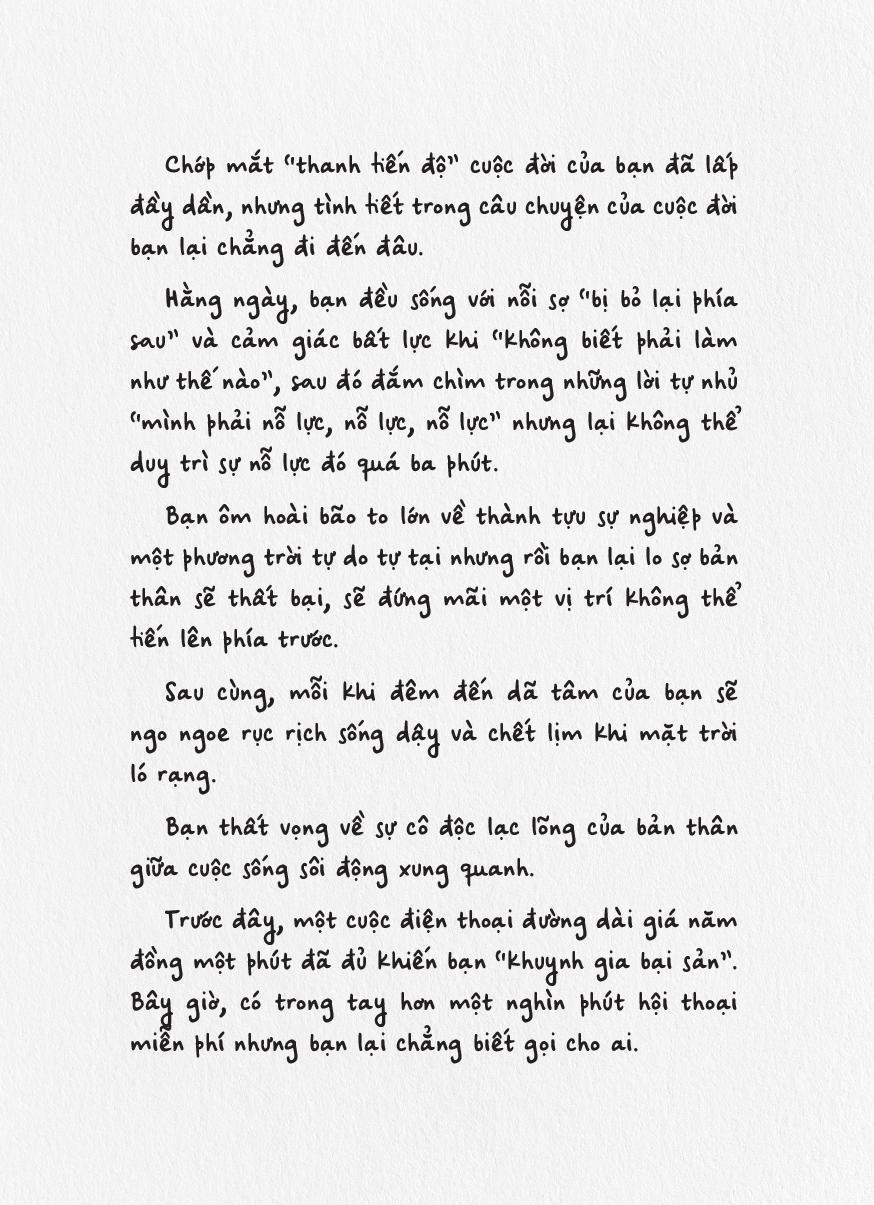 Chớp mắt "thanh tiến độ" cuộc đời của bạn đã lấp
đầy dần, nhưng tình tiết trong câu chuyện của cuộc đời
bạn lại chẳng đi đến đâu.
Hằng ngày, bạn đều sống với nỗi sợ "bị bỏ lại phía
sau" và cảm giác bất lực khi "không biết phải làm
như thế nào", sau đó đắm chìm trong những lời tự nhủ
"mình phải nỗ lực, nỗ lực, nỗ lực" nhưng lại không thể
duy trì sự nỗ lực đó quá ba phút.
Bạn ôm hoài bão to lớn về thành tựu sự nghiệp và
một phương trời tự do tự tại nhưng rồi bạn lại lo sợ bản
thân sẽ thất bại, sẽ đứng mãi một vị trí không thể
tiến lên phía trước.
Sau cùng, mỗi khi đêm đến dã tâm của bạn sẽ
ngo ngoe rục rịch sống dậy và chết lịm khi mặt trời
ló rạng.
Bạn thất vọng về sự cô độc lạc lõng của bản thân
giữa cuộc sống sôi động xung quanh.
Trước đây, một cuộc điện thoại đường dài giá năm
đồng một phút đã đủ khiến bạn "khuynh gia bại sản".
Bây giờ, có trong tay hơn một nghìn phút hội thoại
miễn phí nhưng bạn lại chẳng biết gọi cho ai.